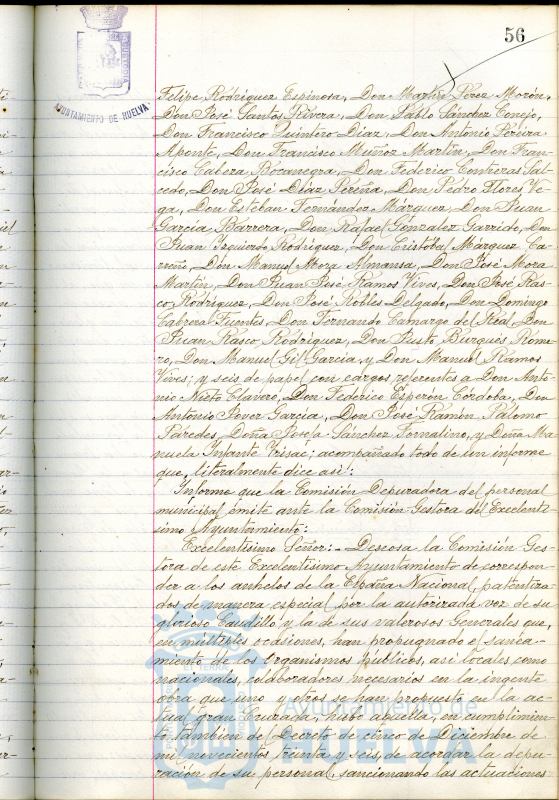 56
AYUNTAMIENTO DE HUELVA
Felipe Rodríguez Espinosa, Don Martín Pérez Morón,
Don José Santos Rivera, Don Pablo Sánchez Conejo,
Don Francisco Quintero Díaz, Don Antonio Pereira
Aponte, Don Francisco Muñoz Martín, Don Fran-
cisco Cabera Bocanegra, Don Federico Contreras Sal-
cedo, Don José Díaz Pereña, Don Pedro Flores Ve-
ga, Don Esteban Fernández Márquez, Don Juan
García Barrera, Don Rafael González Garrido, Don
Juan Izquierdo Rodríguez, Don Cristóbal Márquez Ca-
rreño, Don Manuel Mora Almansa, Don José Mora
Martín, Don Juan José Ramos Vives, Don José Ras-
co Rodríguez, Don José Robles Delgado, Don Domingo
Cabrera Fuentes, Don Fernando Camargo del Real, Don
Juan Rasco Rodríguez, Don Justo Burgués Rome-
ro, Don Manuel Gil García y Don Manuel Ramos
Vives; y seis de papel con cargos referentes a Don Anto-
nio Nieto Clavero, Don Federico Esperón Córdoba, Don
Antonio Jover García, Don José Ramón Palomo
Paredes, Doña Josefa Sánchez Tornalino, y Doña Ma-
nuela Infante; acompañado todo de un informe
que, literalmente dice así:
Informe que la Comisión Depuradora del personal
municipal emite ante la Comisión Gestora del Excelentí-
simo Ayuntamiento:
Excelentísimo Señor:- Deseosa la Comisión Ges-
tora de este Excelentísimo Ayuntamiento de correspon-
der a los anhelos de la España Nacional, patentiza-
dos de manera especial por la autorizada voz de su
glorioso Caudillo y la de sus valerosos Generales que,
en múltiples ocasiones, han propugnado el sanea-
miento de los Organismos públicos, así locales como
nacionales, colaboradores necesarios en la ingente
obra que uno y otros se han propuesto en la ac-
tual gran Cruzada, hubo aquella, en cumplimien-
to también del Decreto de cinco de Diciembre de
mil novecientos treinta y seis, de acordar la depu-
ración de su personal, sancionando las actuaciones
Ayuntamiento de
HUELVA